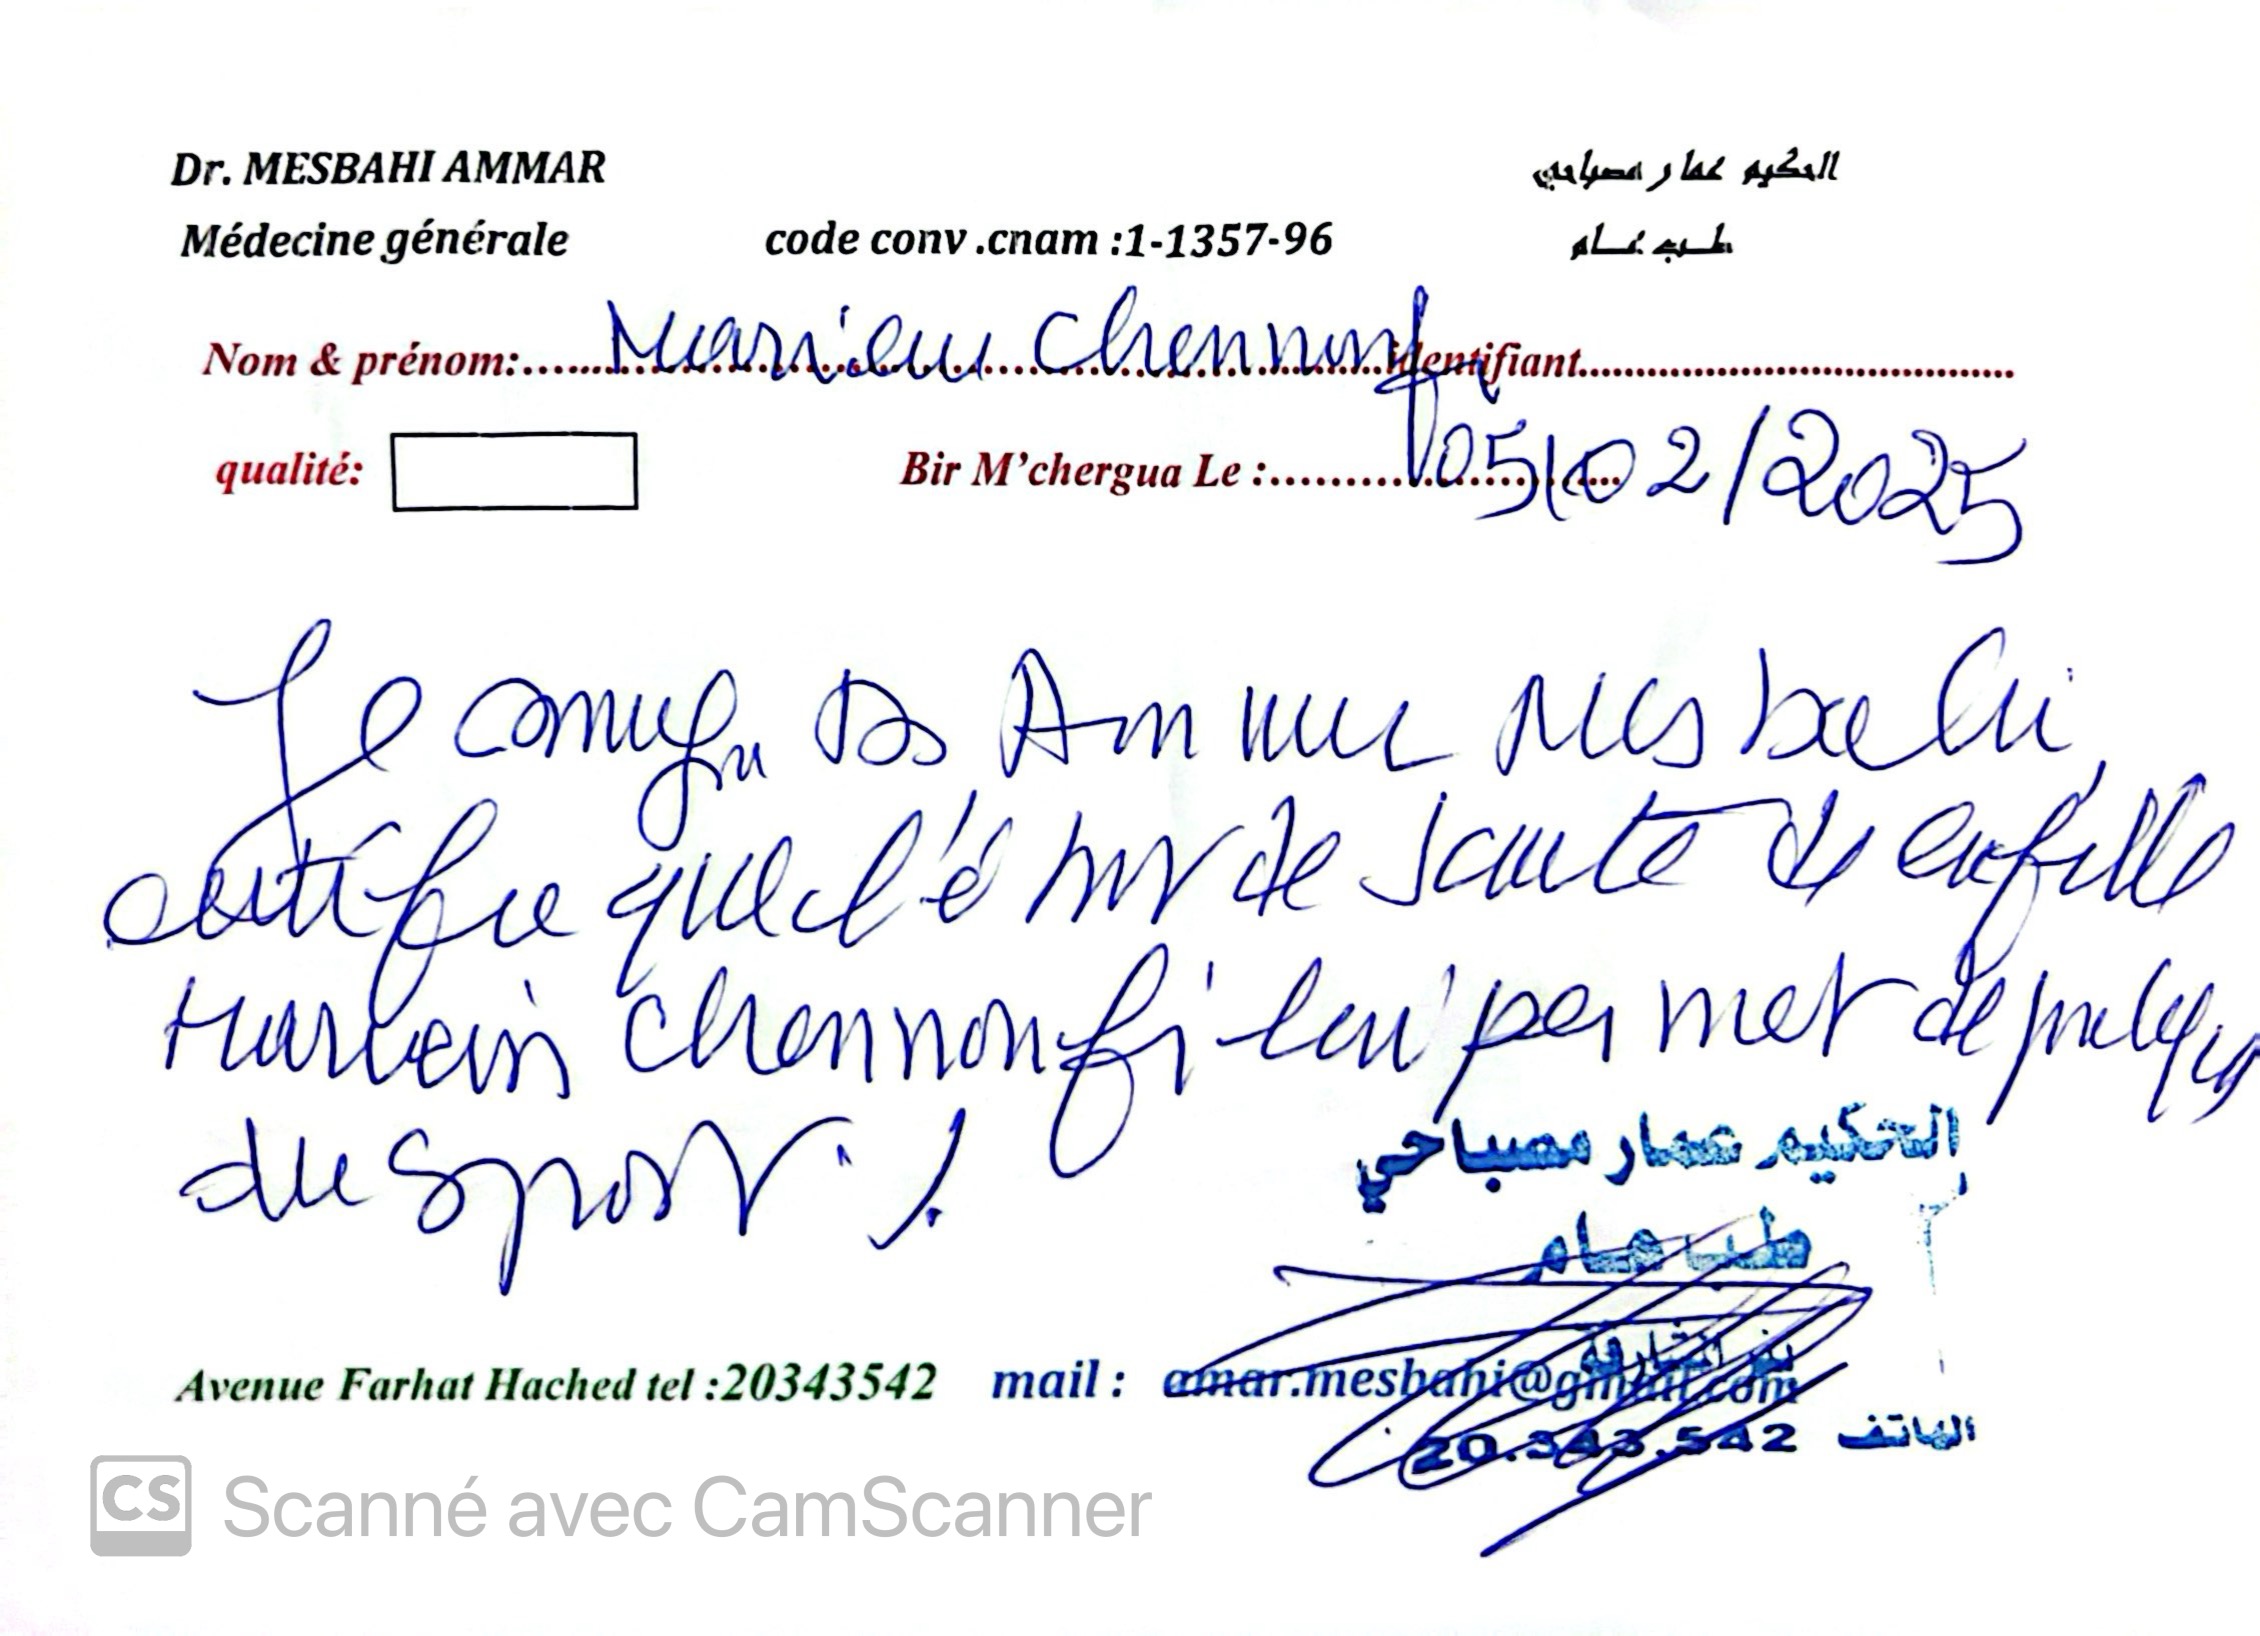 Dr. MESBAHI AMMAR
الحكيم عمار مصباحي
Médecine générale
code conv .cnam :1-1357-96
طب عام
Nom & prénom:
Mariem Chennoufi
identifiant
qualité:
Bir M'chergua Le :
05/02/2025
Je Dr Ammar Mesbahi
certifie que l'état de santé de
Mariem Chennoufi lui permet de
du sport ./.
الحكيم عمار مصباحي
طب عام
Avenue Farhat Hached tel :20343542
mail : amar.mesbahi@gmail.com
الهاتف 20.343.542
CS Scanné avec CamScanner